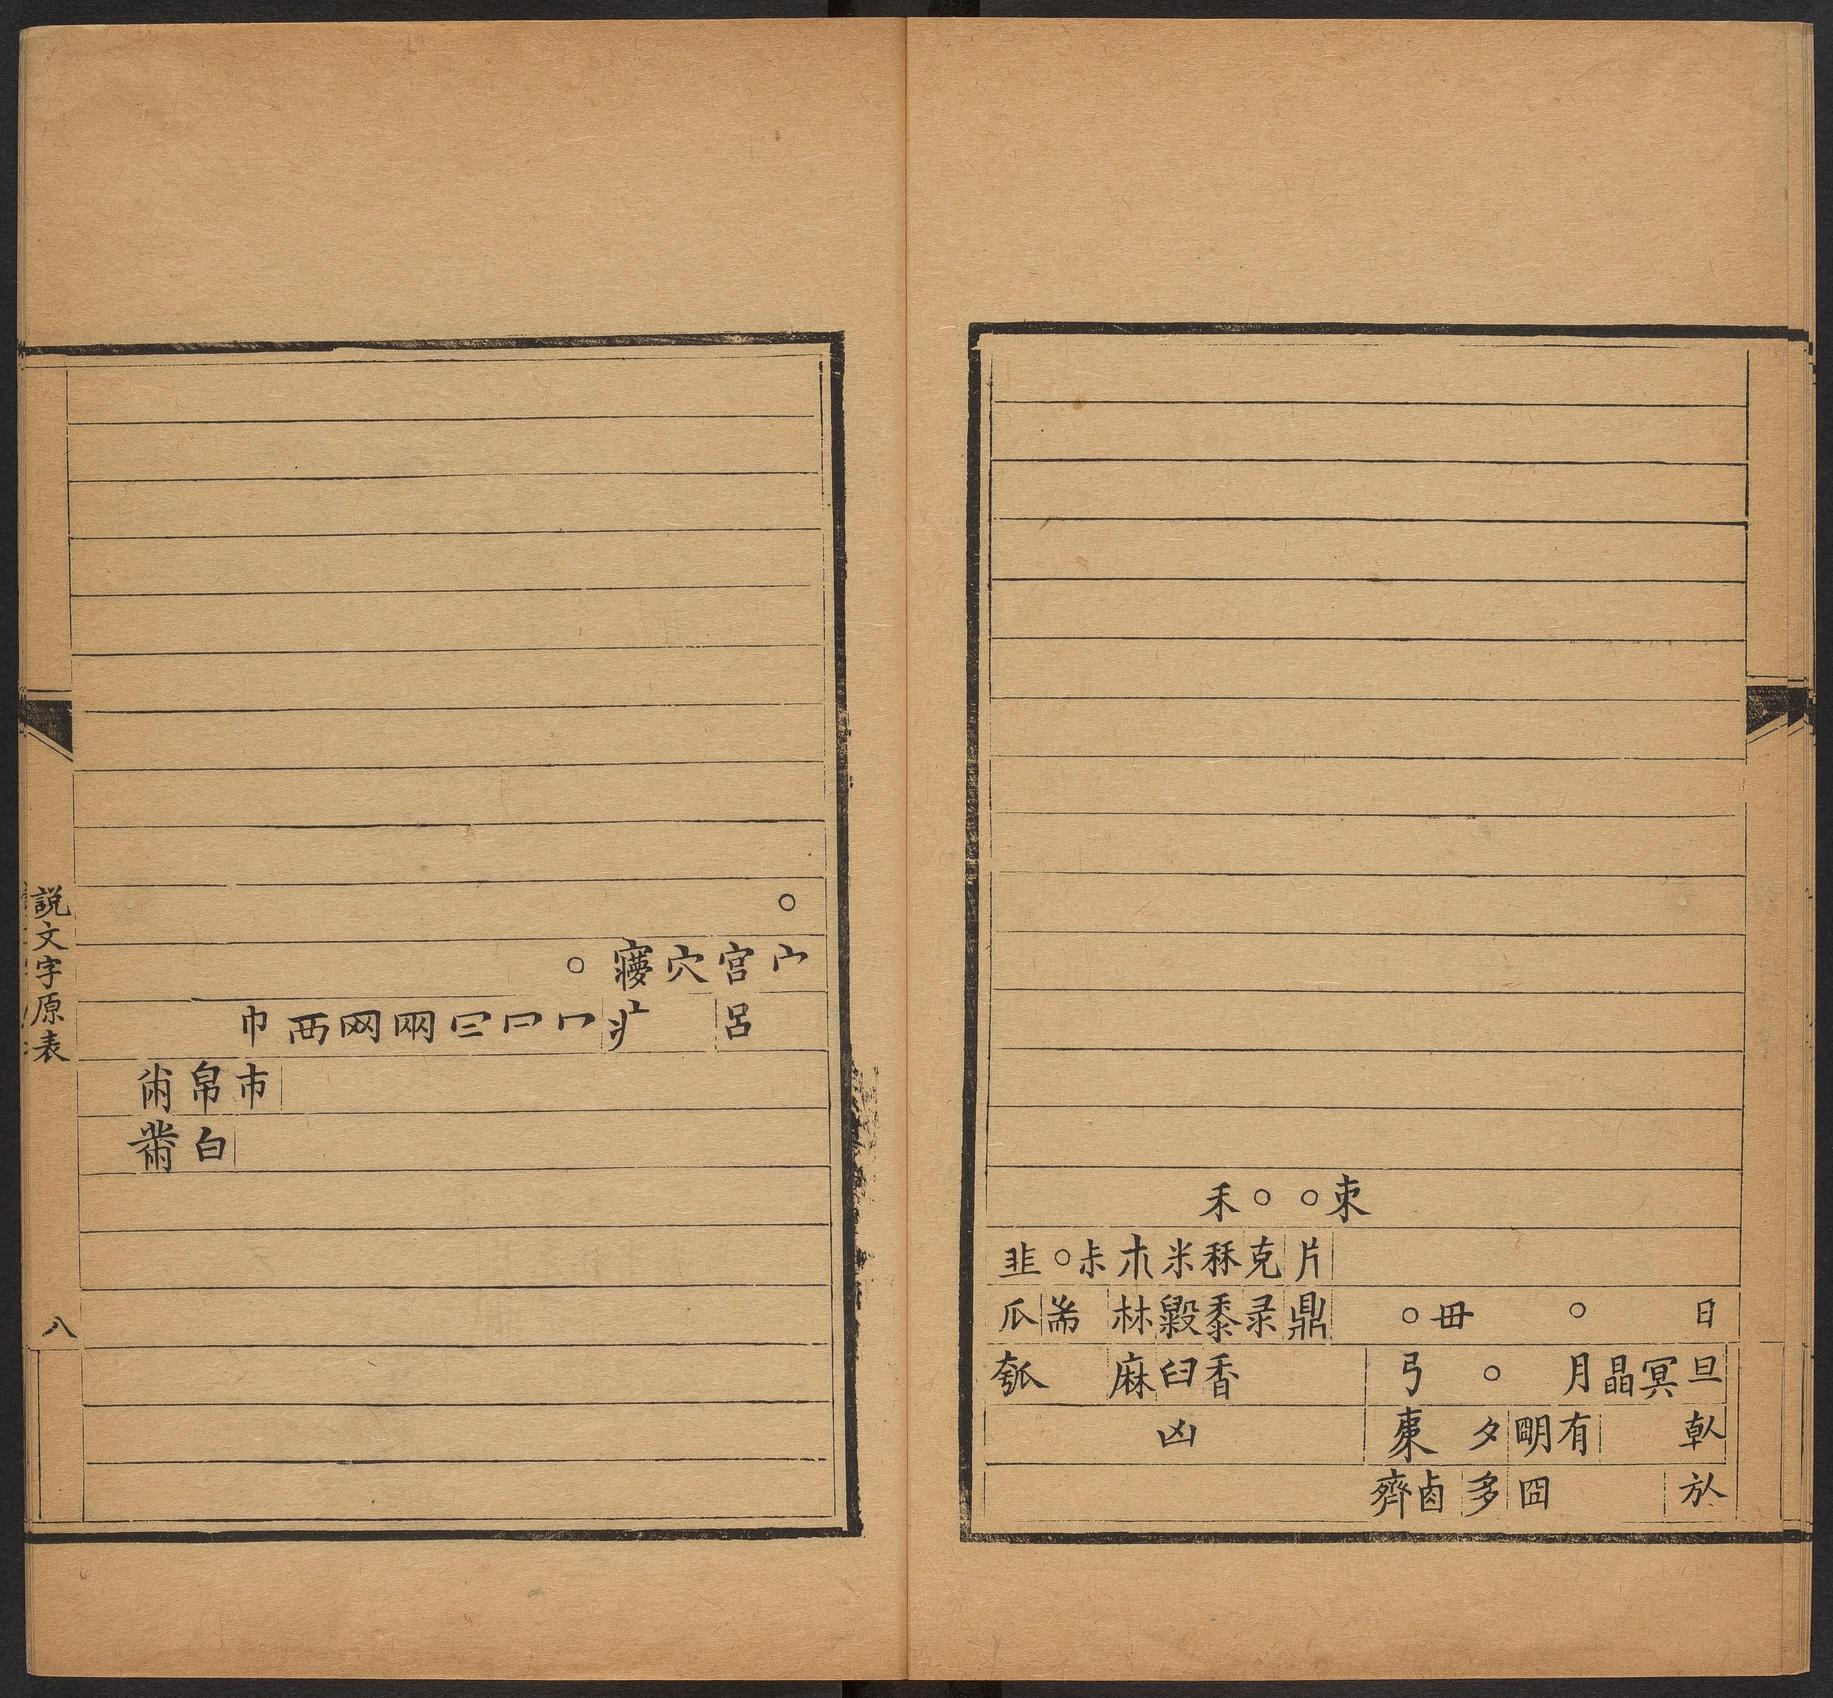 朿○○禾
片克秝米朩尗○韭
日○毌○鼎录黍毇𣏟耑瓜
旦冥晶月○𢎘香臼麻瓠
倝有朙夕㯻凶
㫃囧多卤齊
○
宀宮穴㝱○
呂疒冖𠔼冃㒳网襾巾
巿帛㡀
白黹
說文字原表
八